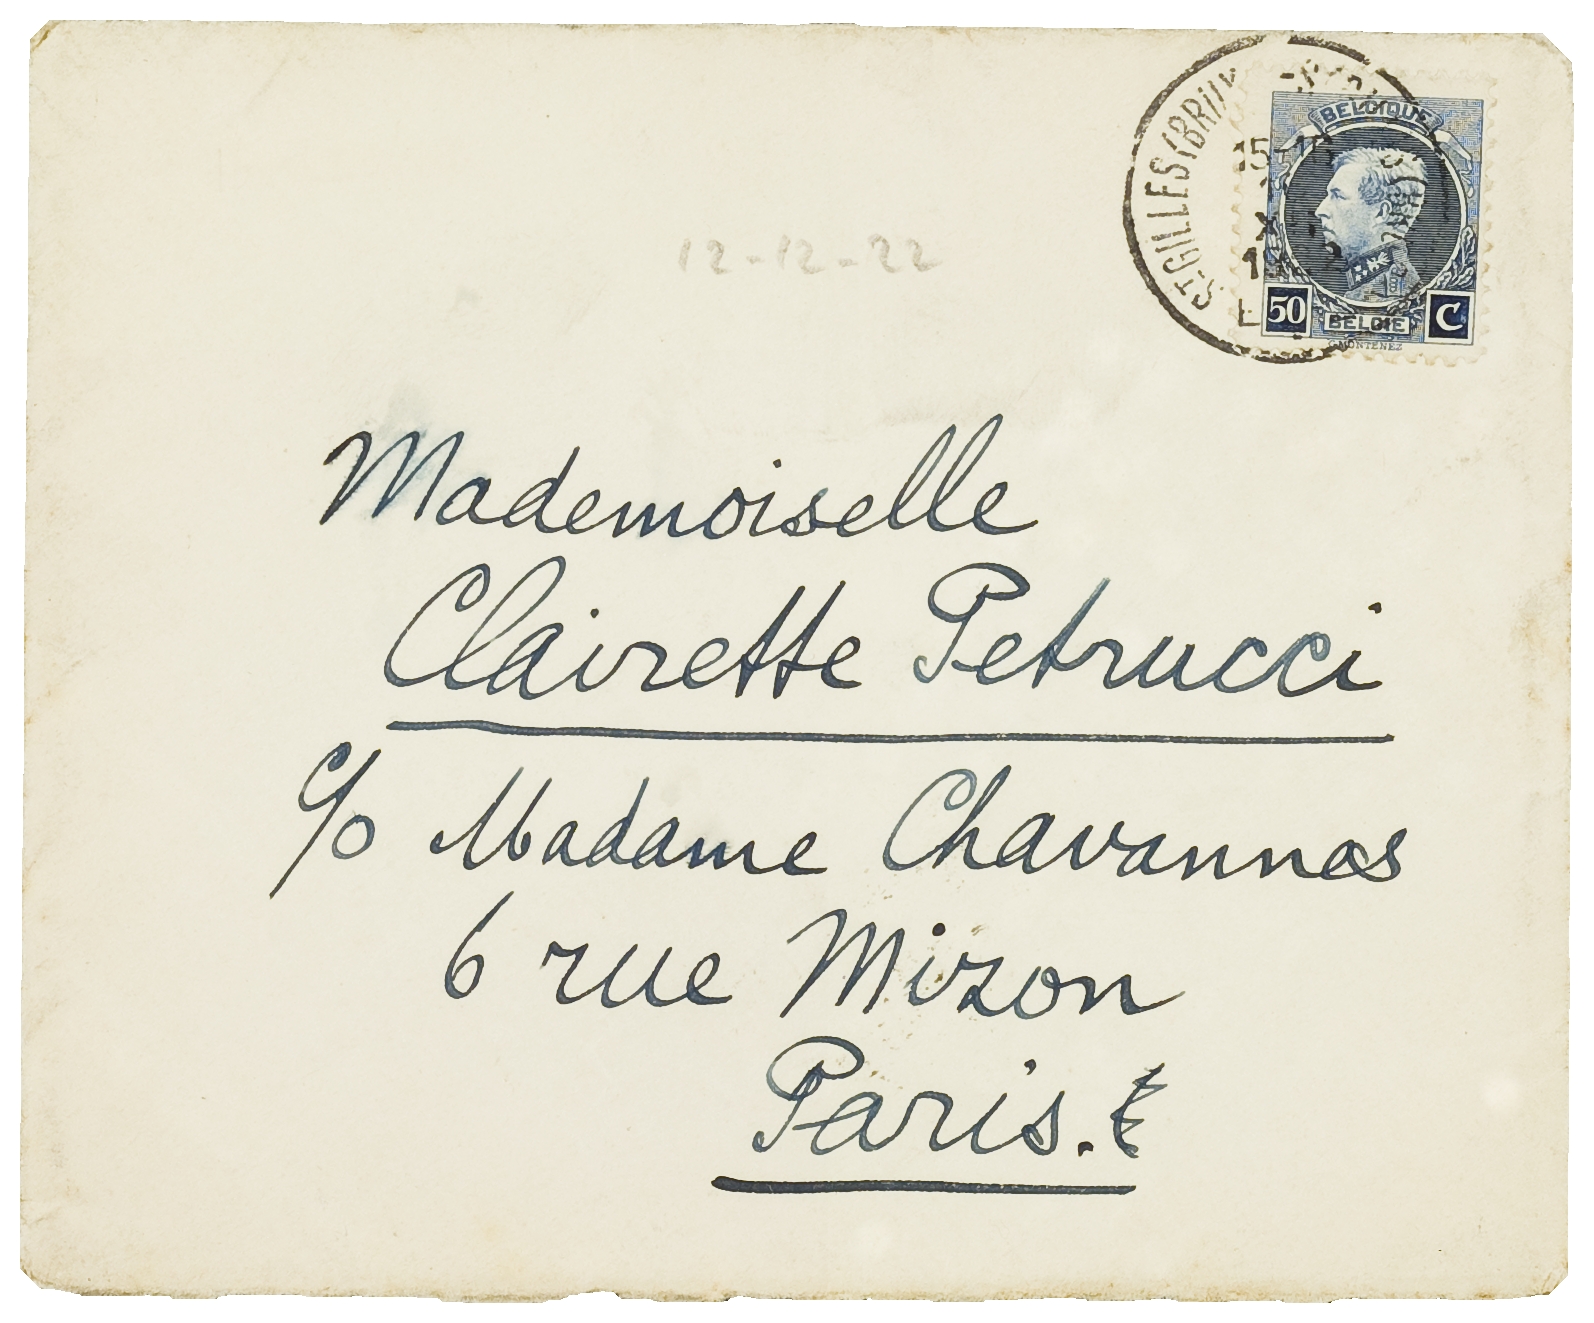 ST GILLES (BRUX
15-1
1922
BELGIQUE
50 C
BELGIË
G. MONTENEZ
12-12-22
Mademoiselle
Clairette Petrucci
c/o Madame Chavannes
6 rue Mizon
Paris.